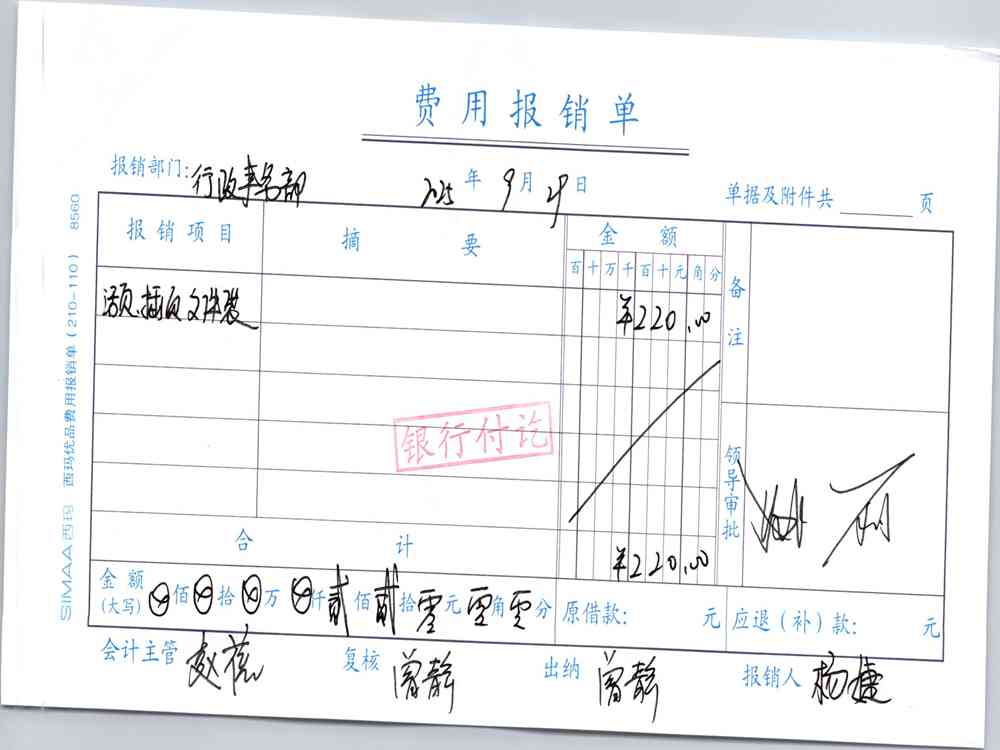 费用报销单
报销部门：行政事务部 2025年9月29日 单据及附件共 页
报销项目 摘要 金额 备注
百十万千百十元角分
活页、插页文件袋 ¥220.00
银行付讫
领导审批
合计 ¥220.00
金额(大写) ⊗佰⊗拾⊗万⊗仟贰佰贰拾零元零角零分 原借款： 元 应退(补)款： 元
会计主管 赵蓓 复核 曾静 出纳 曾静 报销人 杨捷
SIMAA西玛 西玛优品费用报销单(210-110) 8560